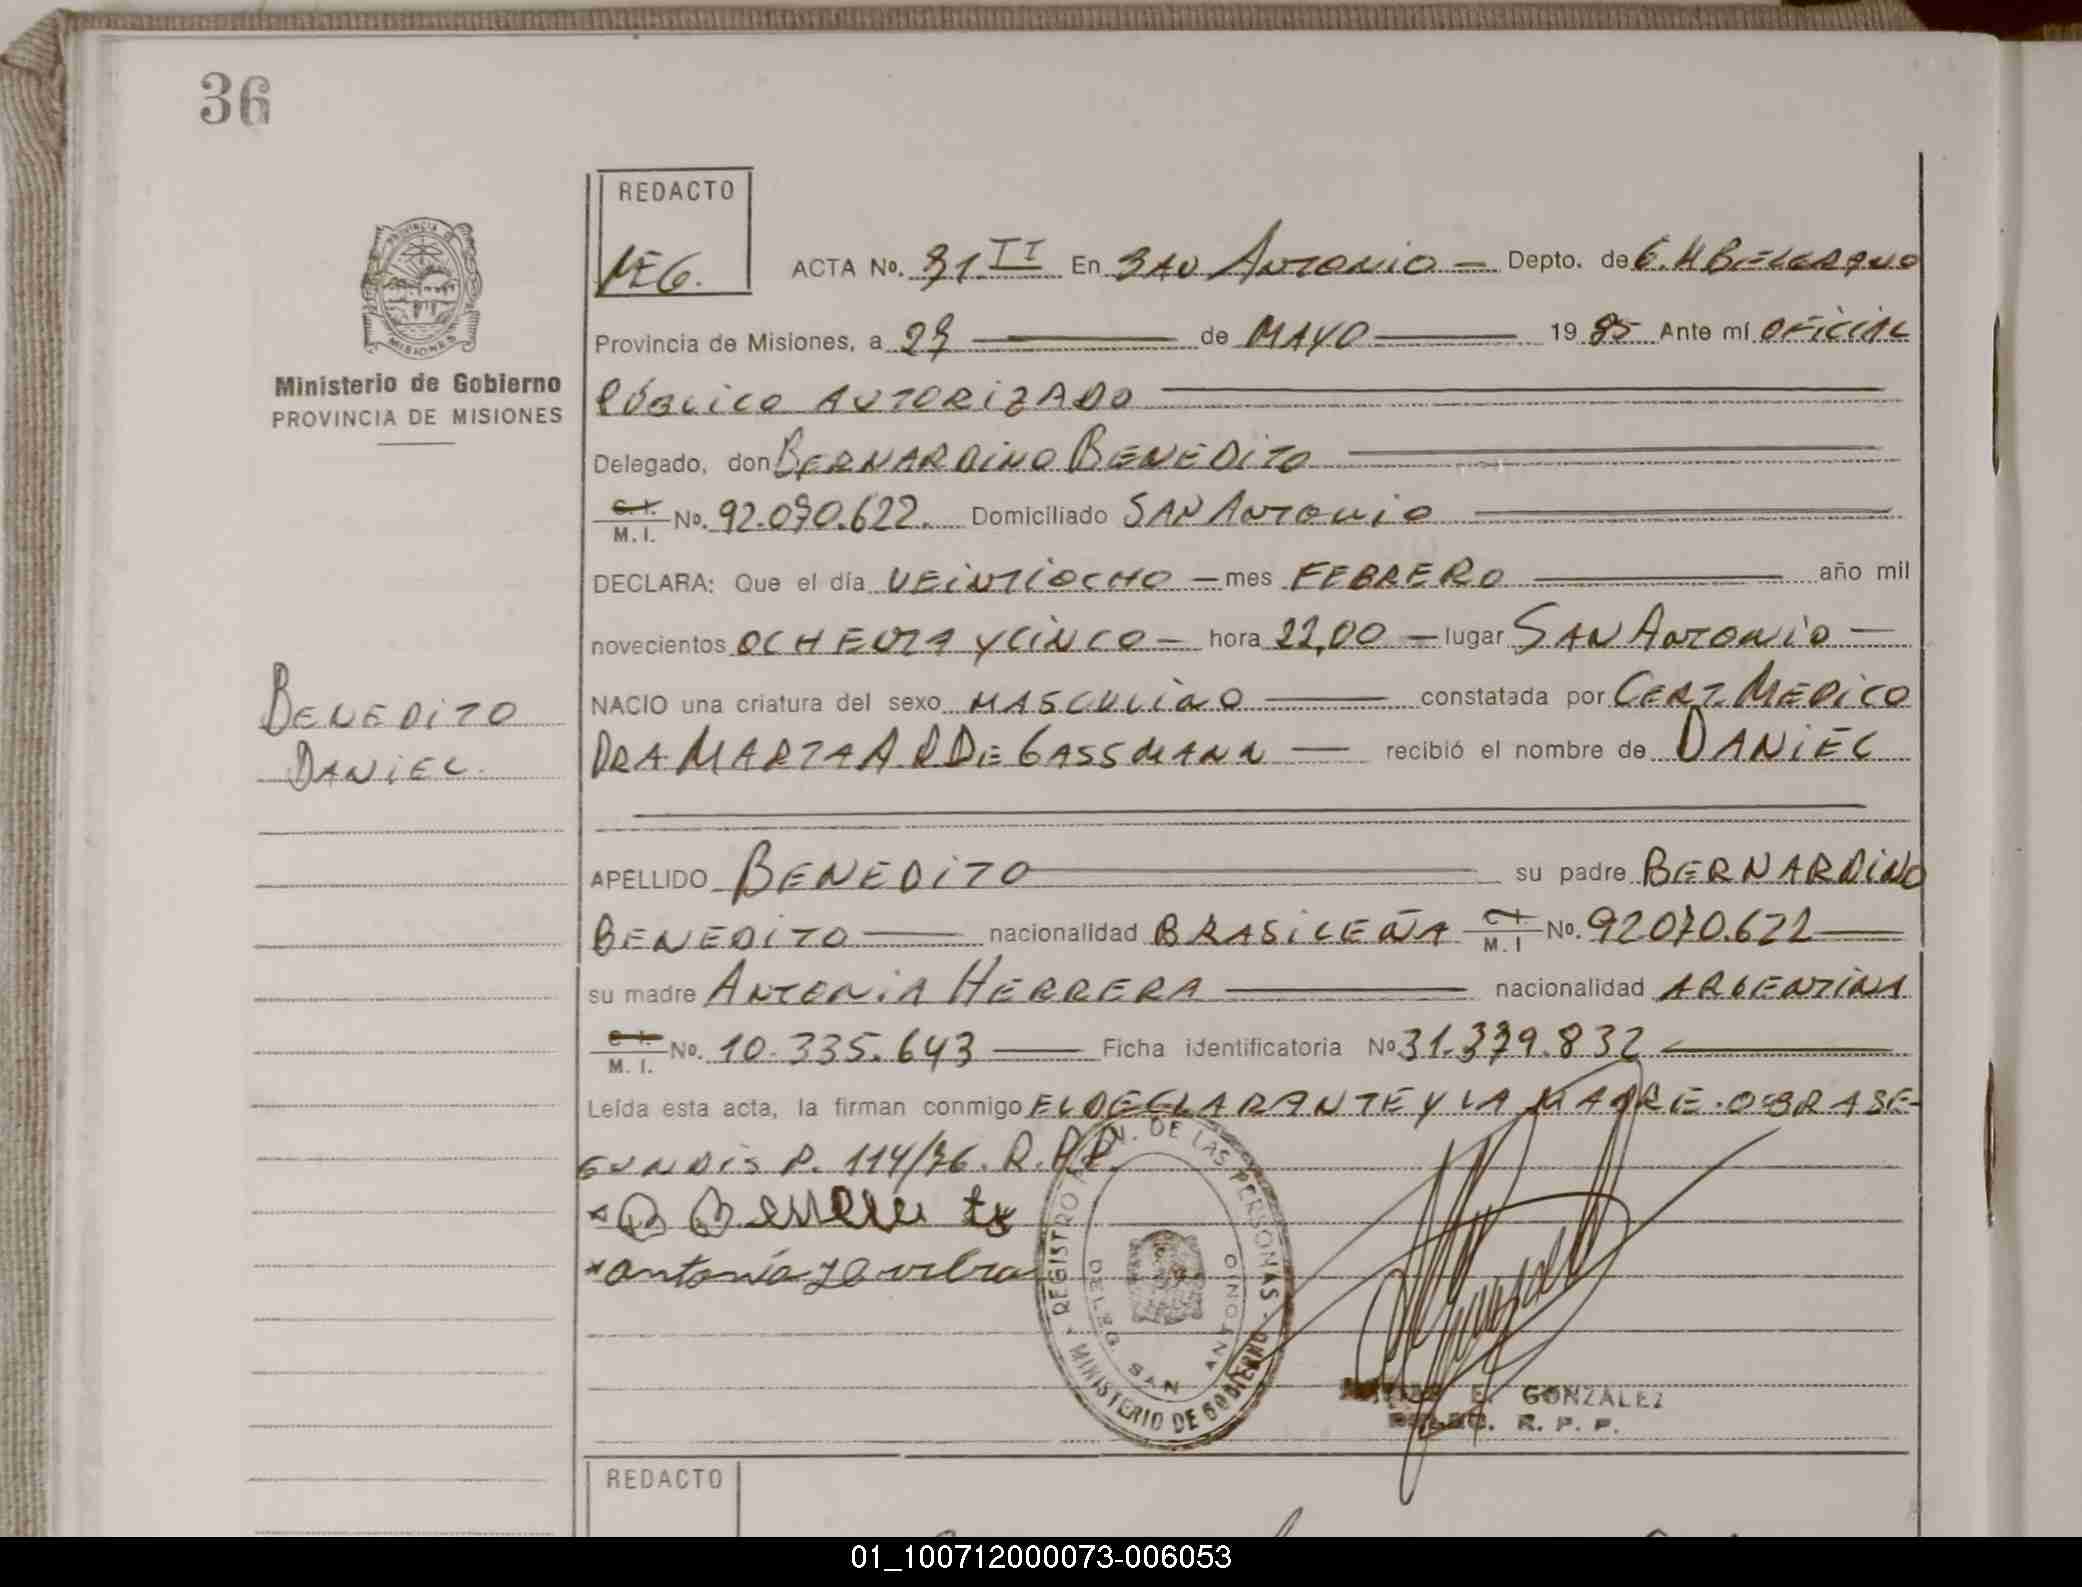 36
REDACTO
MEG.
ACTA No. 31 II En SAN ANTONIO — Depto. de G. M BELGRANO
Provincia de Misiones, a 27 — de MAYO — 1985 Ante mí OFICIAL
PÚBLICO AUTORIZADO
Ministerio de Gobierno
PROVINCIA DE MISIONES
Delegado, don BERNARDINO BENEDITO
C. I. / M. I. No. 92.070.622. Domiciliado SAN ANTONIO
DECLARA: Que el día VEINTIOCHO — mes FEBRERO — año mil
novecientos OCHENTA Y CINCO — hora 22,00 — lugar SAN ANTONIO —
BENEDITO
DANIEL.
NACIO una criatura del sexo MASCULINO — constatada por CERT. MEDICO
DRA MARTA A R DE GASSMANN — recibió el nombre de DANIEL
APELLIDO BENEDITO — su padre BERNARDINO
BENEDITO — nacionalidad BRASILEÑA C I / M. I No. 92070.622
su madre ANTONIA HERRERA — nacionalidad ARGENTINA
C. I. / M. I. No. 10.335.643 — Ficha identificatoria No 31.379.832
Leída esta acta, la firman conmigo EL DECLARANTE Y LA MADRE. OBRA SE-
GUN DIS P. 114/76. R.P.P.
REGISTRO PROV. DE LAS PERSONAS
MINISTERIO DE GOBIERNO
DELEG. SAN ANTONIO
E. GONZALEZ
R. P. P.
REDACTO
01_100712000073-006053